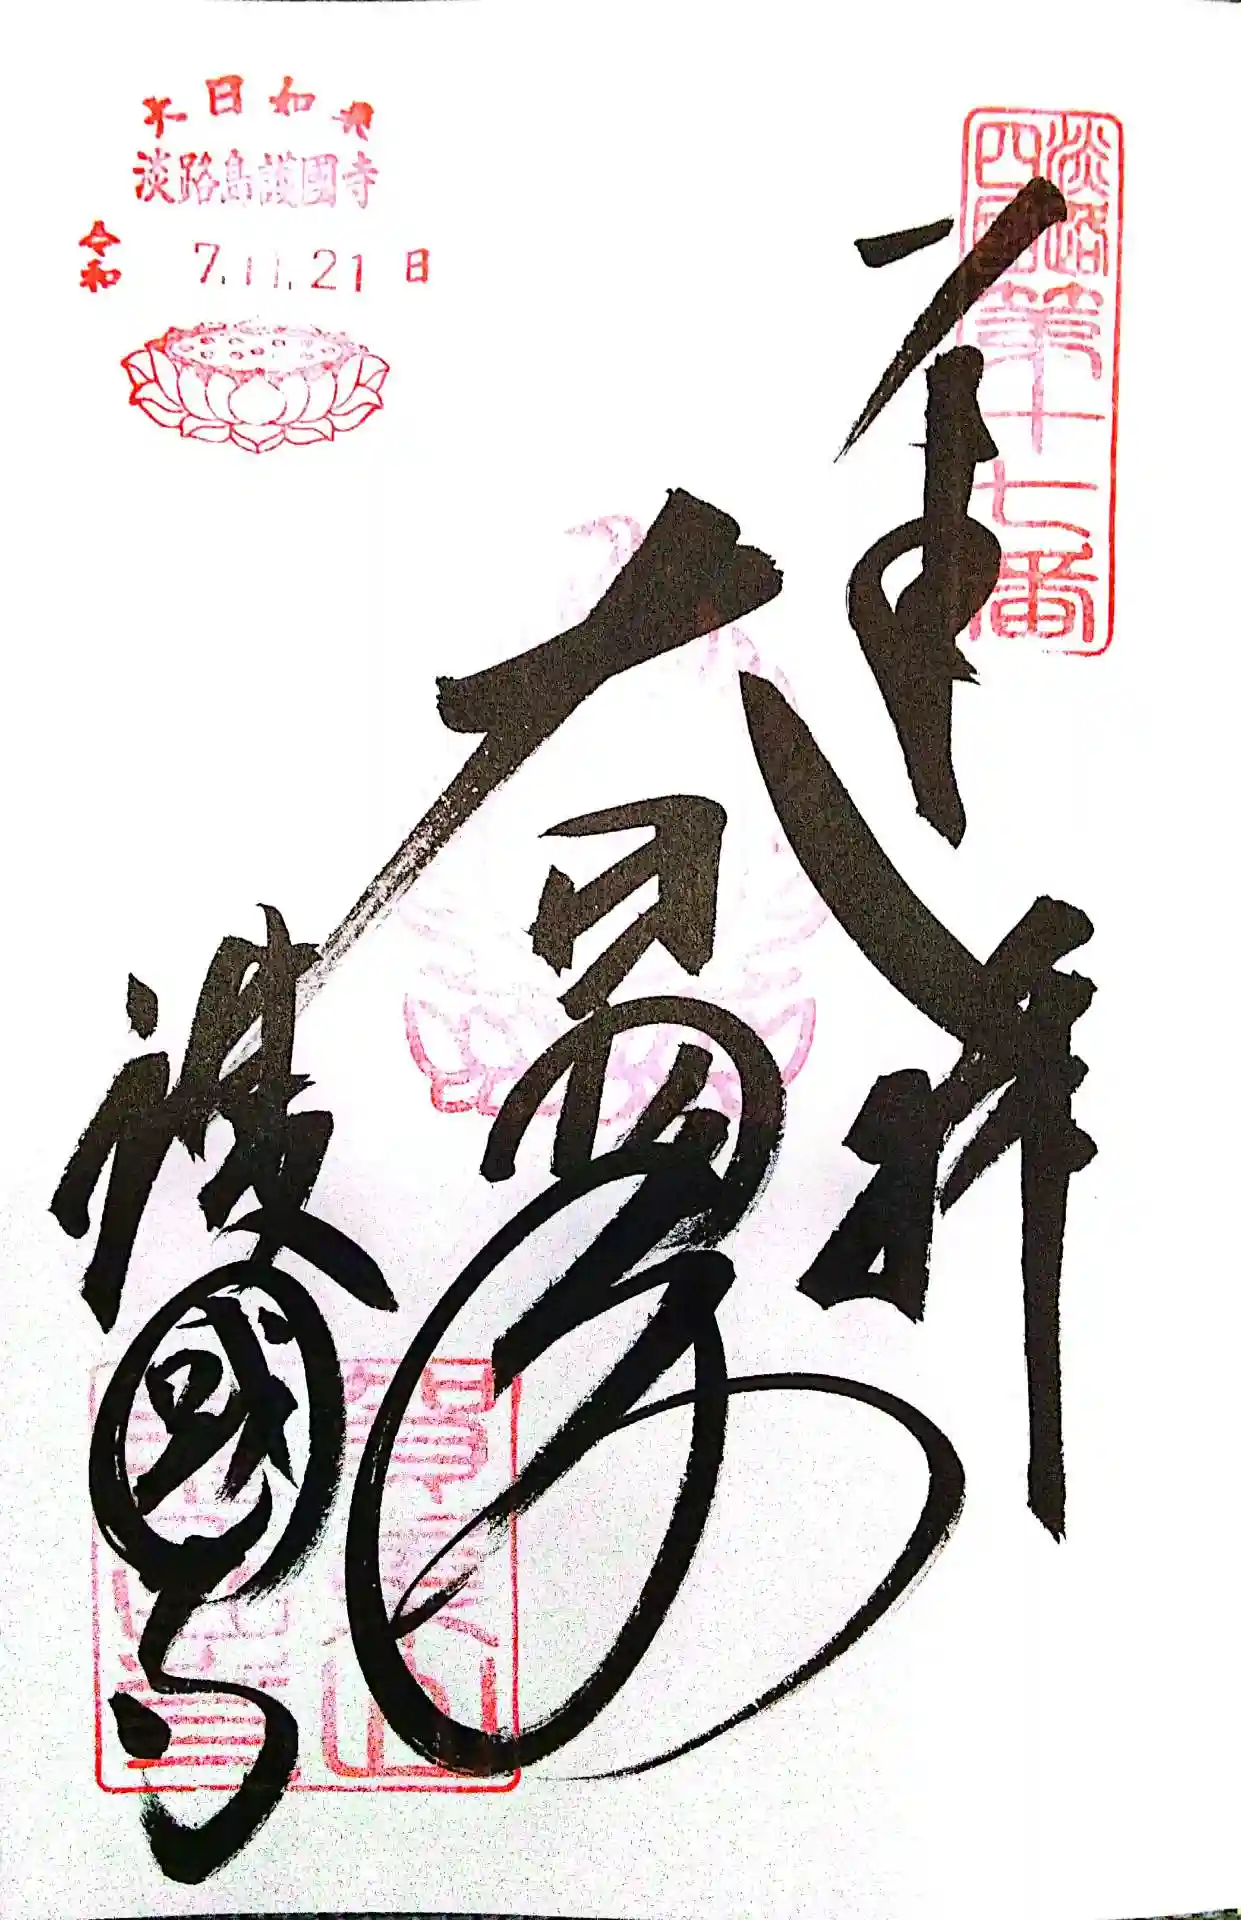 淡路島護國寺
令和 7.11.21 日
淡路四國第十七番
奉拝
大日如来
護國寺
賀集山